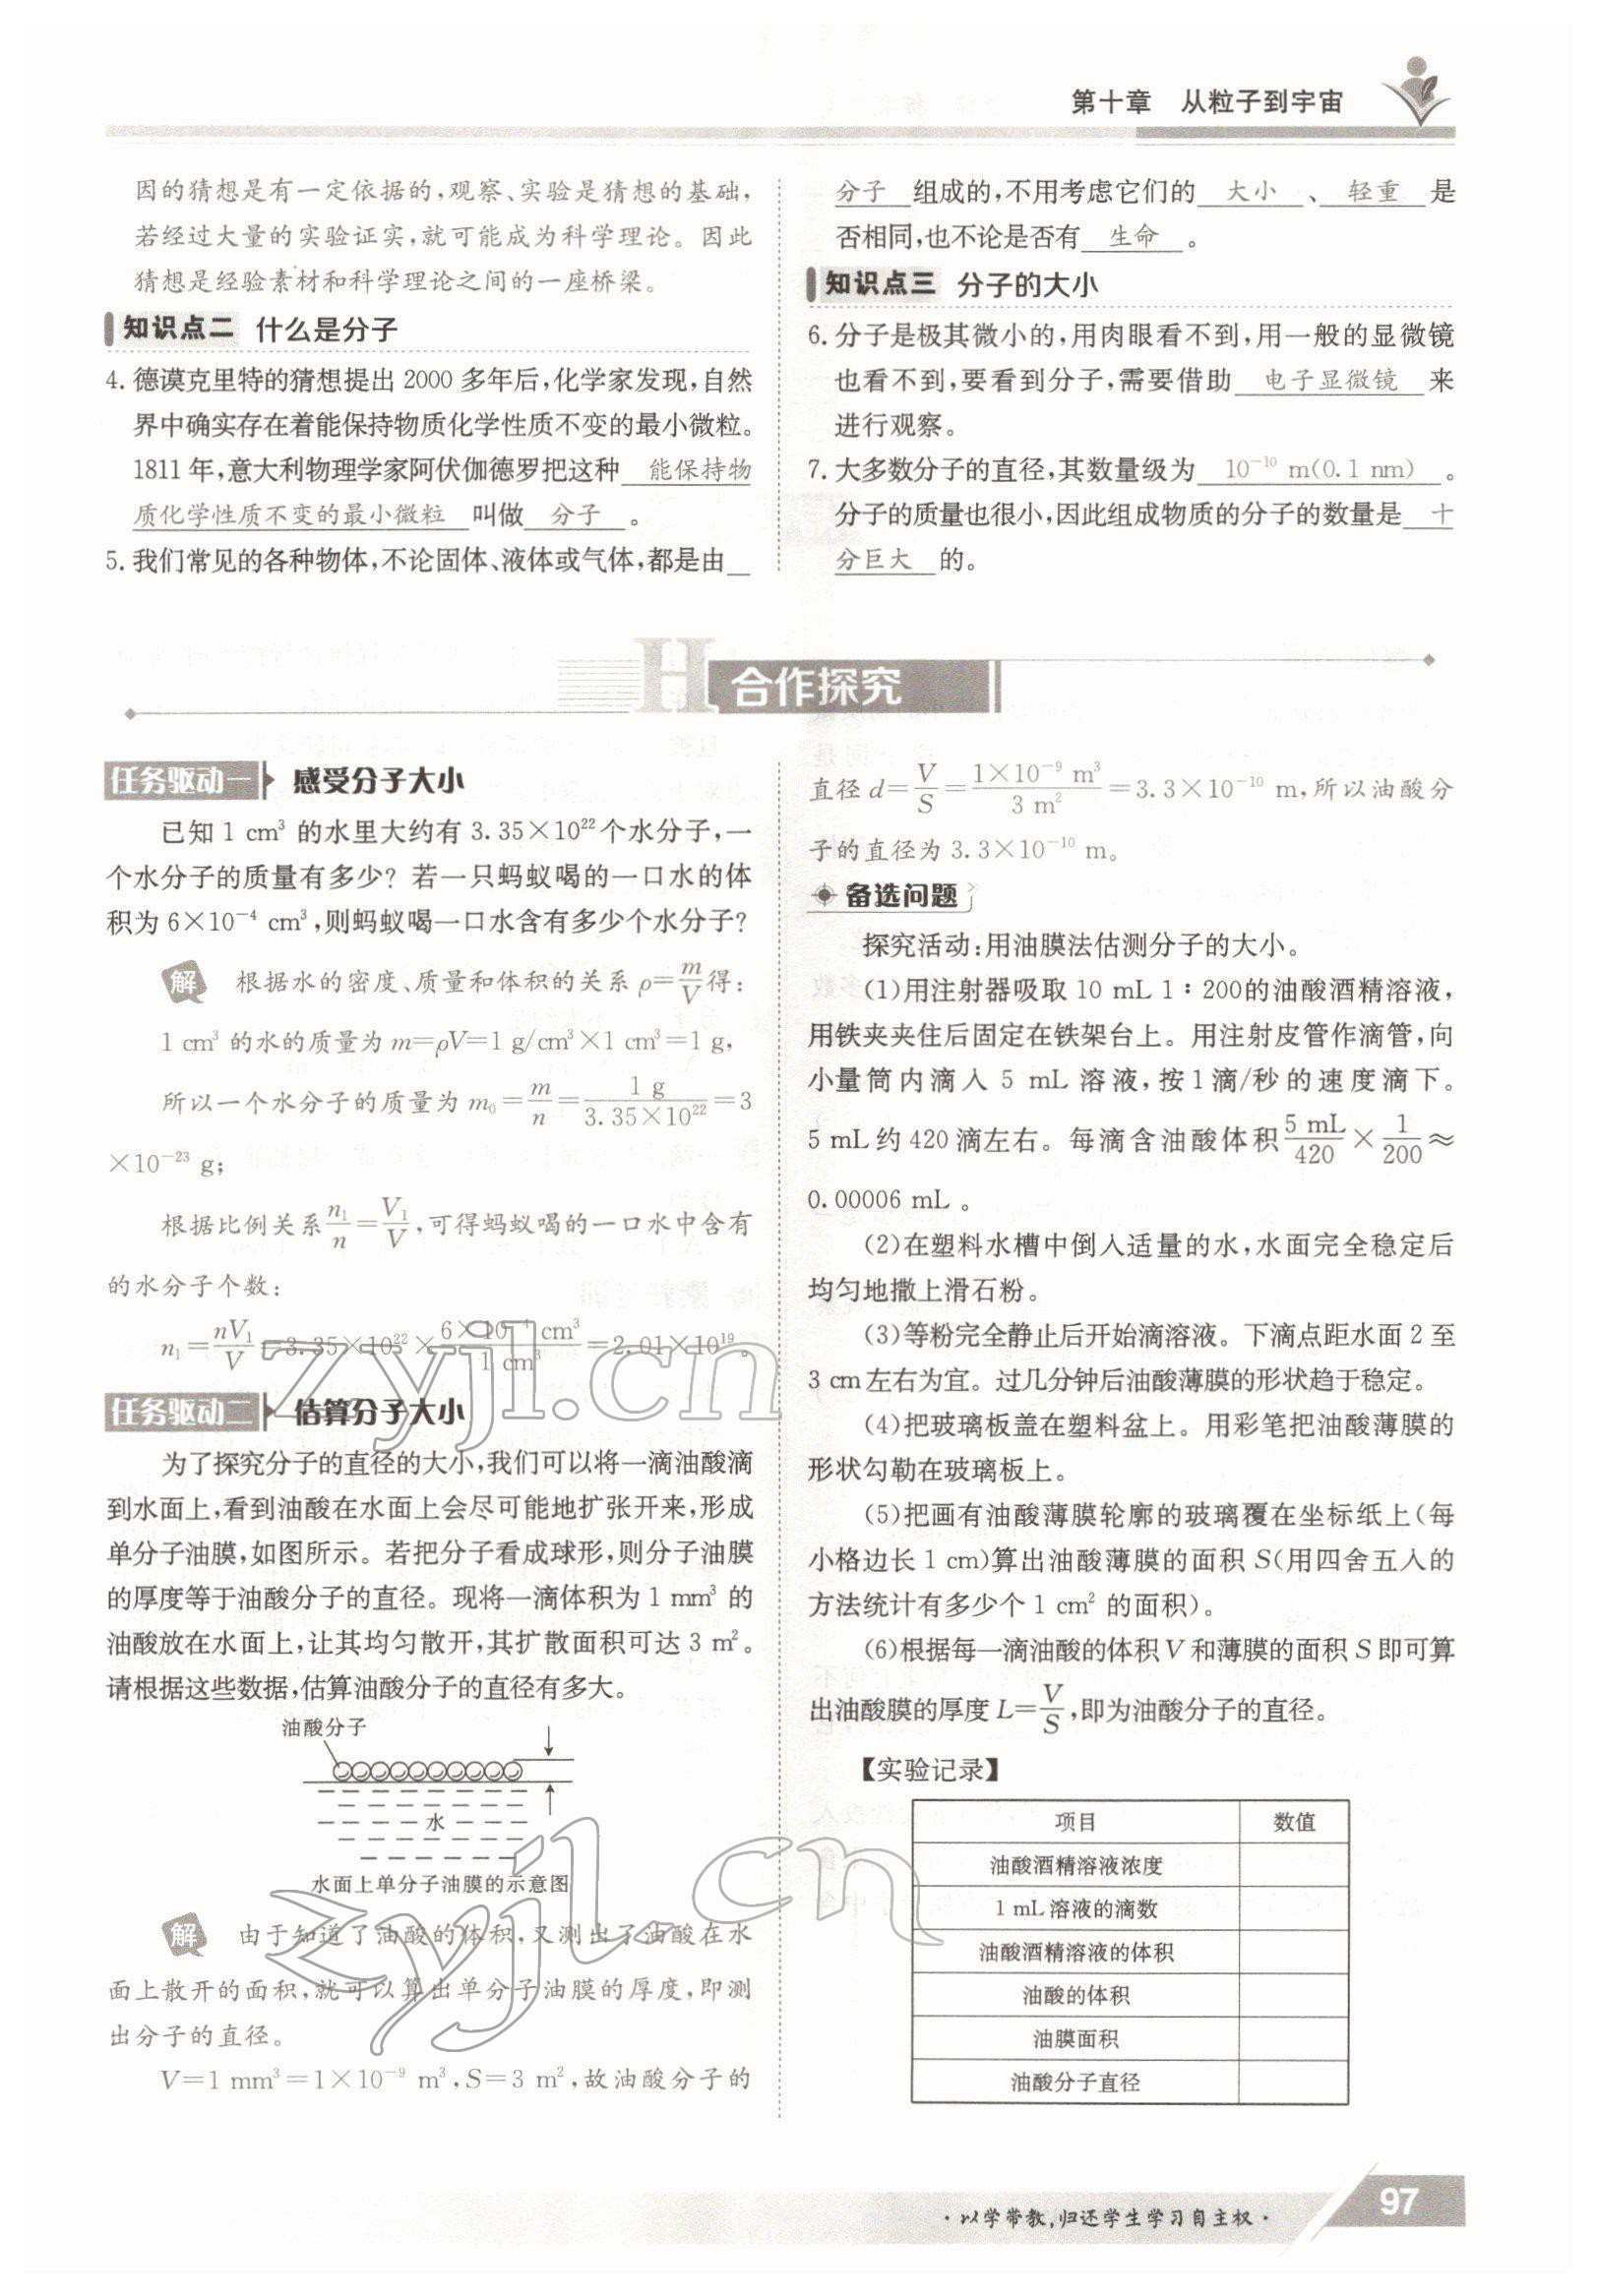 第十章 从粒子到宇宙
因的猜想是有一定依据的,观察、实验是猜想的基础,
若经过大量的实验证实,就可能成为科学理论。因此
猜想是经验素材和科学理论之间的一座桥梁。
知识点二 什么是分子
4. 德谟克里特的猜想提出 2000 多年后,化学家发现,自然
界中确实存在着能保持物质化学性质不变的最小微粒。
1811 年,意大利物理学家阿伏伽德罗把这种 能保持物
质化学性质不变的最小微粒 叫做 分子 。
5. 我们常见的各种物体,不论固体、液体或气体,都是由
分子 组成的,不用考虑它们的 大小 、 轻重 是
否相同,也不论是否有 生命 。
知识点三 分子的大小
6. 分子是极其微小的,用肉眼看不到,用一般的显微镜
也看不到,要看到分子,需要借助 电子显微镜 来
进行观察。
7. 大多数分子的直径,其数量级为 10⁻¹⁰ m(0.1 nm) 。
分子的质量也很小,因此组成物质的分子的数量是 十
分巨大 的。
H 合作探究
任务驱动一 感受分子大小
已知 1 cm³ 的水里大约有 3.35×10²²个水分子,一
个水分子的质量有多少? 若一只蚂蚁喝的一口水的体
积为 6×10⁻⁴ cm³,则蚂蚁喝一口水含有多少个水分子?
解 根据水的密度、质量和体积的关系 ρ=m/V得:
1 cm³ 的水的质量为 m=ρV=1 g/cm³×1 cm³=1 g,
所以一个水分子的质量为 m₀=m/n=1 g/3.35×10²²=3
×10⁻²³ g;
根据比例关系n₁/n=V₁/V,可得蚂蚁喝的一口水中含有
的水分子个数:
n₁=nV₁/V=3.35×10²²×6×10⁻⁴ cm³/1 cm³=2.01×10¹⁹。
任务驱动二 估算分子大小
为了探究分子的直径的大小,我们可以将一滴油酸滴
到水面上,看到油酸在水面上会尽可能地扩张开来,形成
单分子油膜,如图所示。若把分子看成球形,则分子油膜
的厚度等于油酸分子的直径。现将一滴体积为 1 mm³ 的
油酸放在水面上,让其均匀散开,其扩散面积可达 3 m²。
请根据这些数据,估算油酸分子的直径有多大。
油酸分子
水
水面上单分子油膜的示意图
解 由于知道了油酸的体积,又测出了油酸在水
面上散开的面积,就可以算出单分子油膜的厚度,即测
出分子的直径。
V=1 mm³=1×10⁻⁹ m³,S=3 m²,故油酸分子的
直径 d=V/S=1×10⁻⁹ m³/3 m²=3.3×10⁻¹⁰ m,所以油酸分
子的直径为 3.3×10⁻¹⁰ m。
备选问题
探究活动:用油膜法估测分子的大小。
(1)用注射器吸取 10 mL 1∶200的油酸酒精溶液,
用铁夹夹住后固定在铁架台上。用注射皮管作滴管,向
小量筒内滴入 5 mL 溶液,按1滴/秒的速度滴下。
5 mL约 420 滴左右。每滴含油酸体积5 mL/420×1/200≈
0.00006 mL。
(2)在塑料水槽中倒入适量的水,水面完全稳定后
均匀地撒上滑石粉。
(3)等粉完全静止后开始滴溶液。下滴点距水面 2 至
3 cm左右为宜。过几分钟后油酸薄膜的形状趋于稳定。
(4)把玻璃板盖在塑料盆上。用彩笔把油酸薄膜的
形状勾勒在玻璃板上。
(5)把画有油酸薄膜轮廓的玻璃覆在坐标纸上(每
小格边长 1 cm)算出油酸薄膜的面积 S(用四舍五入的
方法统计有多少个 1 cm² 的面积)。
(6)根据每一滴油酸的体积 V 和薄膜的面积 S 即可算
出油酸膜的厚度 L=V/S,即为油酸分子的直径。
【实验记录】
项目 数值
油酸酒精溶液浓度
1 mL 溶液的滴数
油酸酒精溶液的体积
油酸的体积
油膜面积
油酸分子直径
zyjl.cn
zyjl.cn
·以学带教,归还学生学习自主权·
97